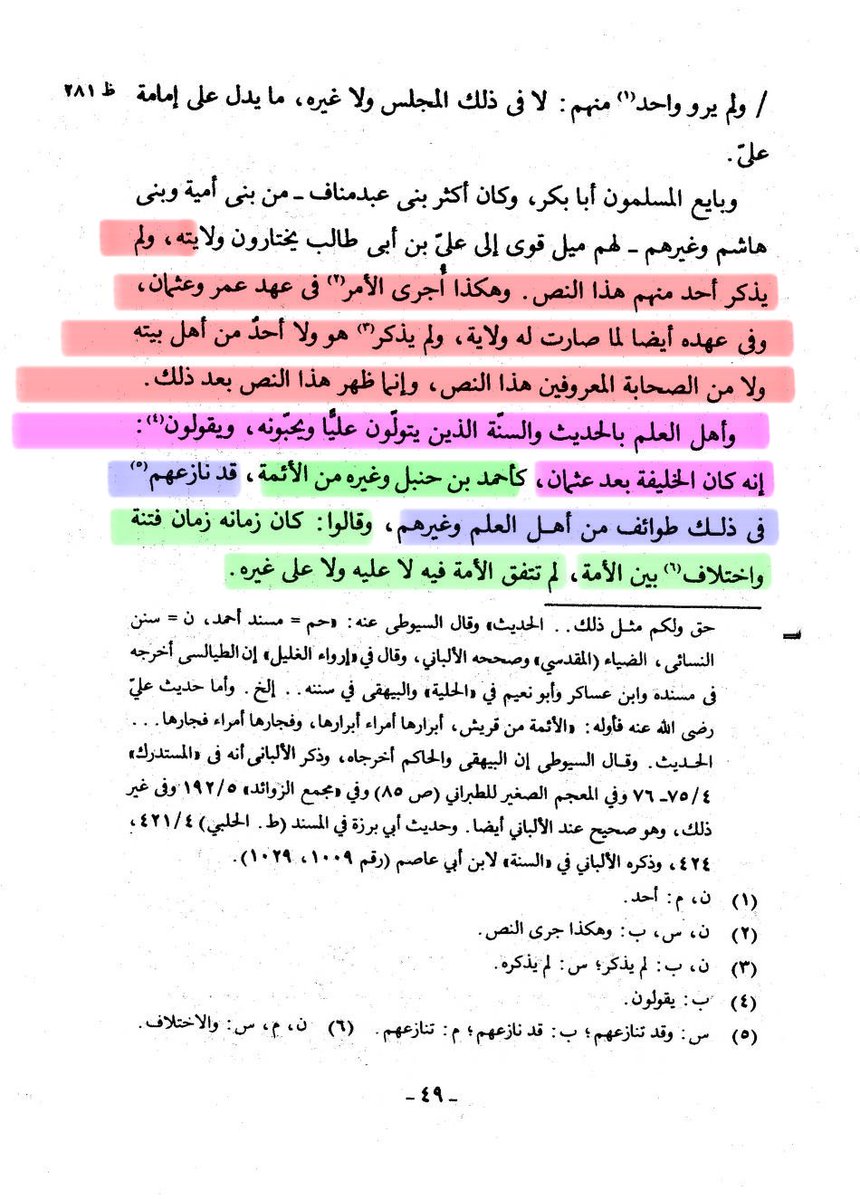 / ولم يرو واحد(١) منهم : لا فى ذلك المجلس ولا غيره، ما يدل على إمامة ظ ٢٨١
علىّ .
وبايع المسلمون أبا بكر، وكان أكثر بنى عبدمناف ـ من بنى أمية وبنى
هاشم وغيرهم ـ لهم ميل قوى إلى علىّ بن أبى طالب يختارون ولايته، ولم
يذكر أحد منهم هذا النص . وهكذا أُجرى الأمر(٢) فى عهد عمر وعثمان،
وفى عهده أيضا لما صارت له ولاية، ولم يذكر(٣) هو ولا أحدٌ من أهل بيته
ولا من الصحابة المعروفين هذا النص، وإنما ظهر هذا النص بعد ذلك .
وأهل العلم بالحديث والسنّة الذين يتولّون عليًّا ويحبّونه، ويقولون(٤) :
إنه كان الخليفة بعد عثمان، كأحمد بن حنبل وغيره من الأئمة، قد نازعهم(٥)
فى ذلـك طوائف من أهـل العلم وغيرهم، وقالوا : كان زمانه زمان فتنة
واختلاف(٦) بين الأمة، لم تتفق الأمة فيه لا عليه ولا على غيره .
حق ولكم مثـل ذلك . . الحديث» وقال السيوطى عنه : «حم = مسند أحمد، ن = سنن
النسائى، الضياء (المقدسي)» وصححه الألباني، وقال في «إرواء الغليل» إن الطيالسى أخرجه
فى مسنده وابن عساكر وأبو نعيم في «الحلية» والبيهقى في سننه . . إلخ . وأما حديث عليّ
رضى الله عنه فأوله : «الأئمة من قريش، أبرارها أمراء أبرارها، وفجارها أمراء فجارها . . .
الحـديث . وقـال السيوطى إن البيهقى والحاكم أخرجاه، وذكر الألبانى أنه فى «المستدرك»
٤/٧٥ـ ٧٦ وفي المعجم الصغير للطبراني (ص ٨٥) وفي «مجمع الزوائد» ٥/١٩٢ وفى غير
ذلك، وهو صحيح عند الألباني أيضا . وحديث أبي برزة في المسند (ط . الحلبي) ٤/٤٢١،
٤٢٤، وذكره الألباني في «السنة» لابن أبي عاصم (رقم ١٠٠٩، ١٠٢٩) .
(١) ن، م : أحد .
(٢) ن، س، ب : وهكذا جرى النص .
(٣) ن، ب : لم يذكر؛ س : لم يذكره .
(٤) ب : يقولون .
(٥) س : وقد تنازعهم؛ ب : قد نازعهم؛ م : تنازعهم . (٦) ن، م، س : والاختلاف .
ـ ٤٩ ـ